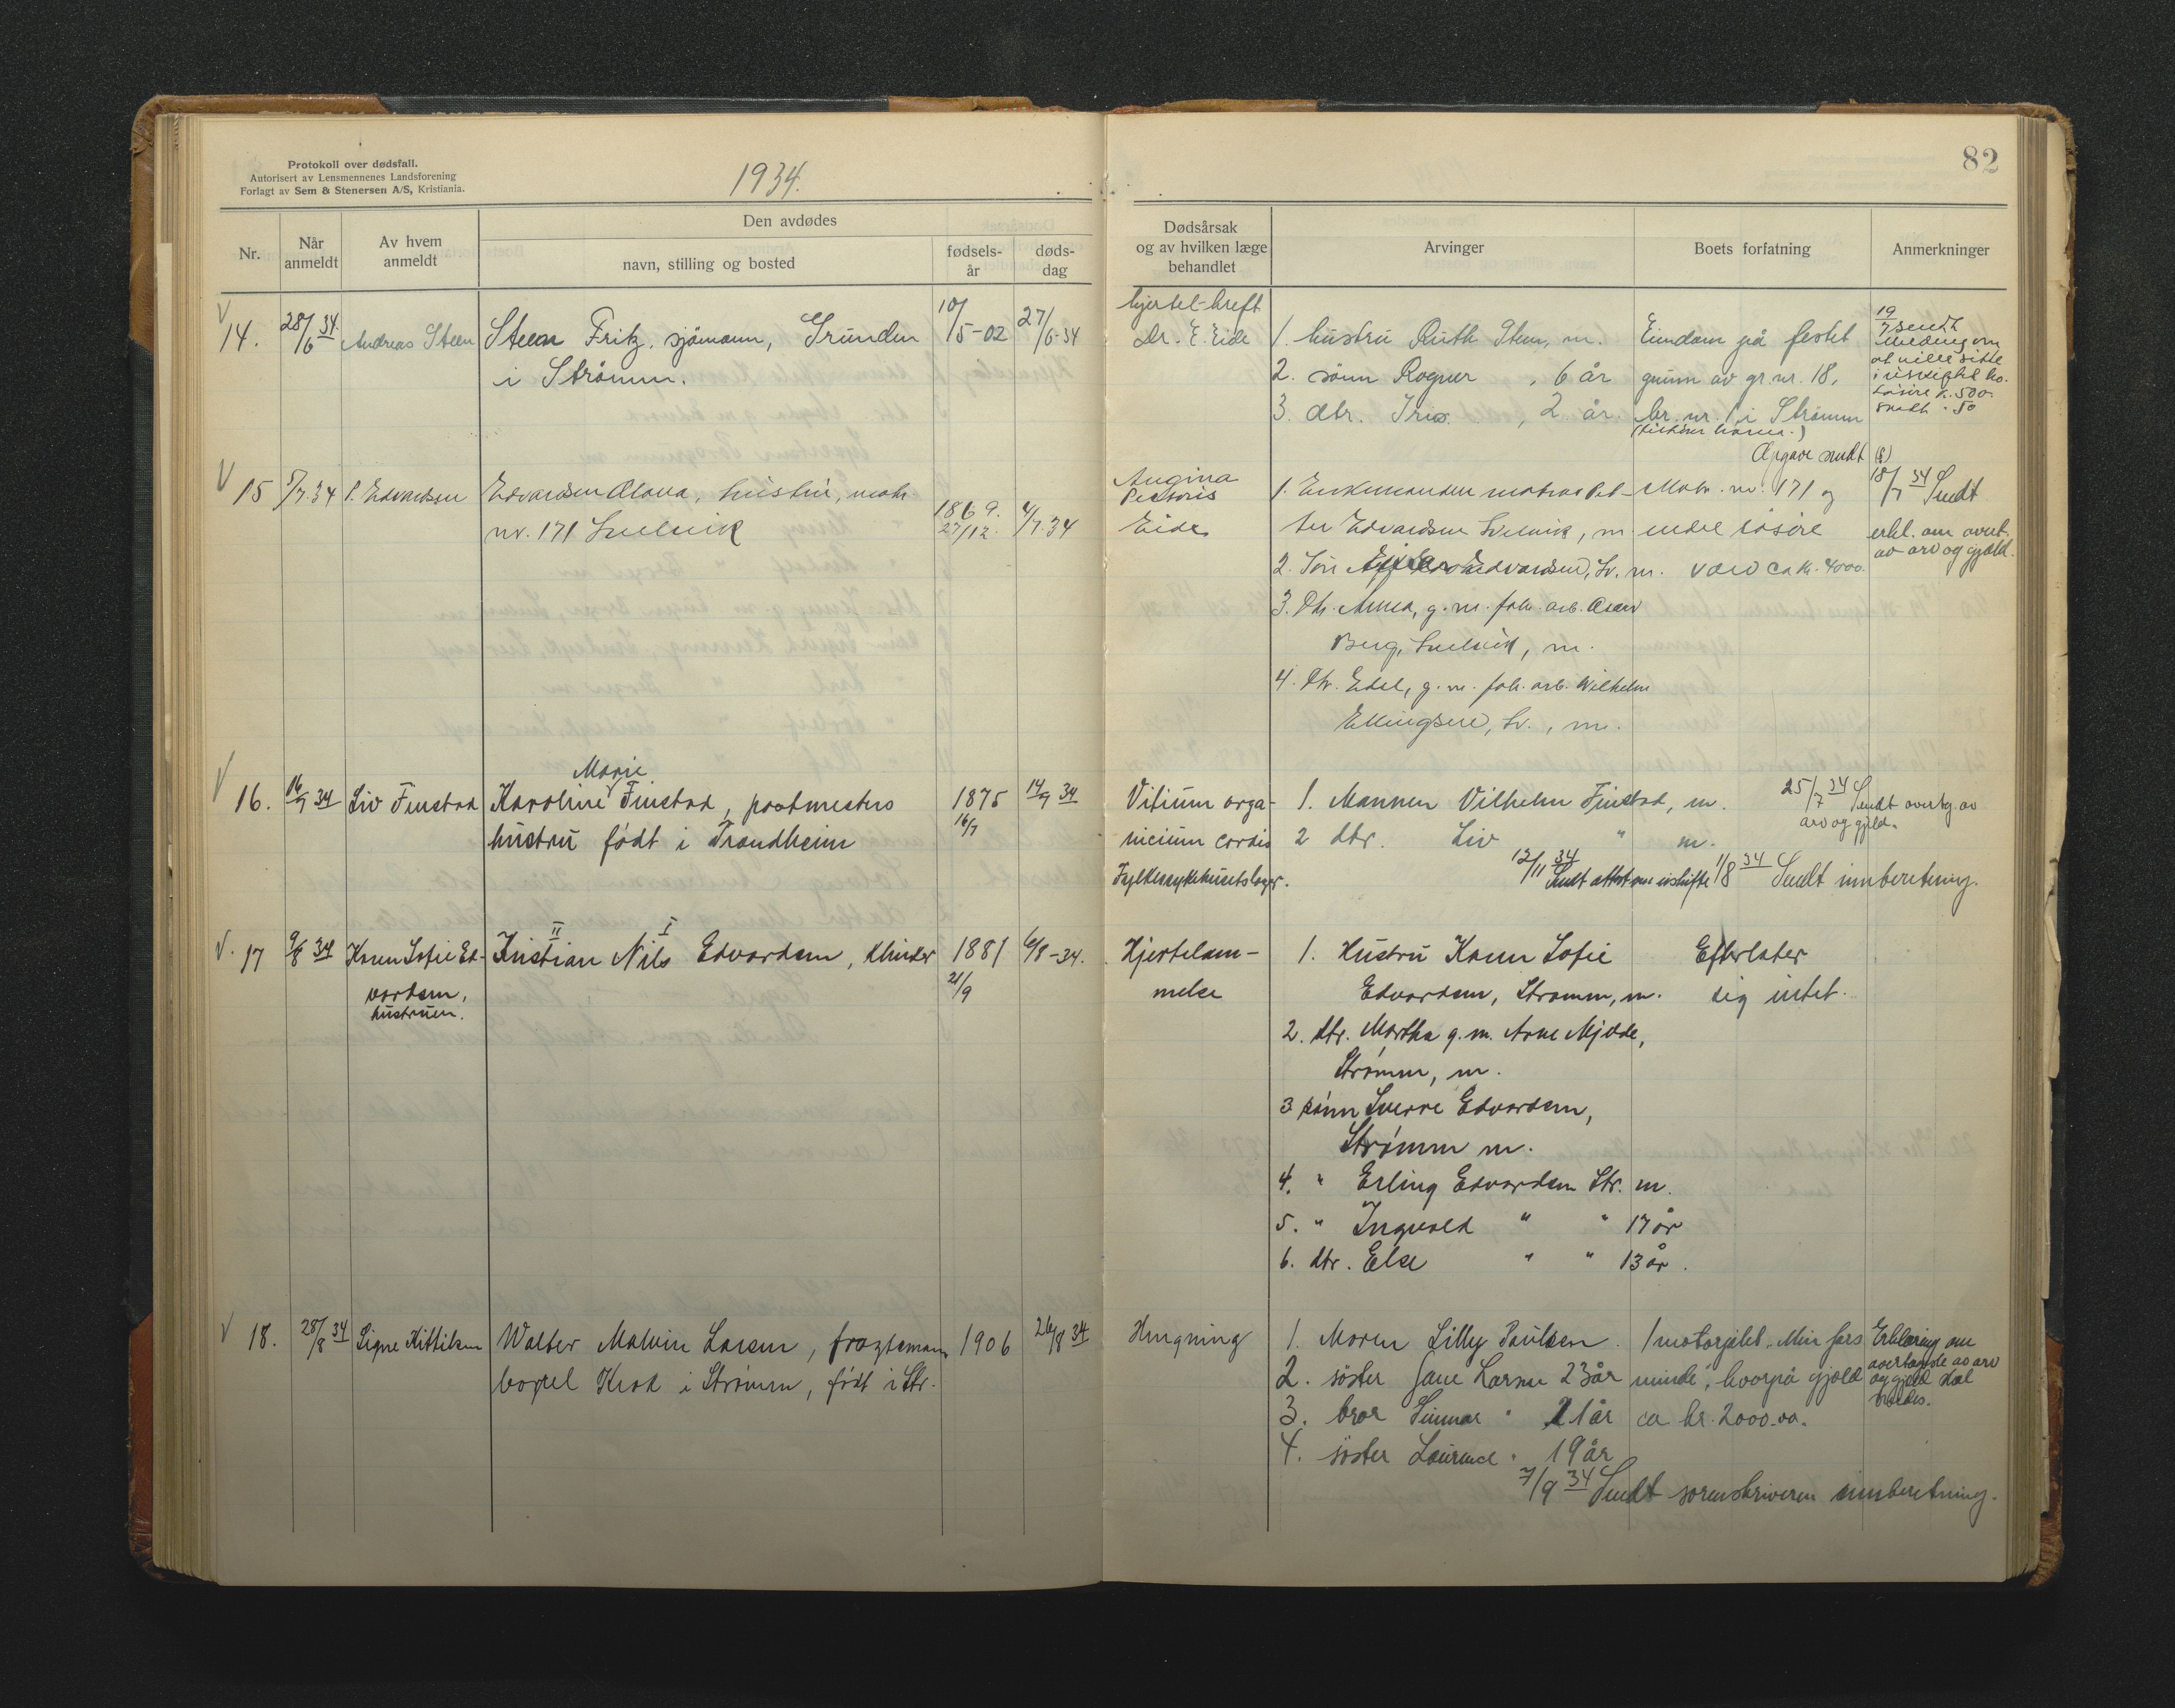 Protokoll over dødsfall.
Autorisert av Lensmennenes Landsforening
Forlagt av Sem & Stenersen A/S, Kristiania.
1934.
82
Nr.
Når anmeldt
Av hvem anmeldt
Den avdødes
navn, stilling og bosted
fødsels-år
døds-dag
Dødsårsak
og av hvilken læge
behandlet
Arvinger
Boets forfatning
Anmerkninger
14. 28/6 34. Andreas Steen Steen Fritz, sjömann, Grunden 10/5-02 27/6-34
i Strömm.
hjertel-kreft
Dr. E. Eide
1. hustru Ruth Steen, m.
2. sönn Ragnar, 6 år
3. dtr. Iris, 2 år.
Eiendom på festet
grunn av gr.nr. 18,
br. nr. 1 i Strömm
19/7 sendt
melding om
at ville sitte
i uskiftet bo.
Løsøre k. 500
Opgave sendt
15 5/7.34 P. Edvardsen Edvardsen Olava, hustru, matr. 1869. 4/7.34
nr. 171 Svelvik 27/12.
Angina
Pectoris
Eide
1. Enkemanden matros Pet-
ter Edvardsen Svelvik, m.
2. Sön Edvardsen, Sv. m.
3. Dtr. Anna, g. m. fabr. arb. Oscar
Berg, Svelvik, m.
4. Dtr. Edel, g. m. fab. arb. Wilhelm
Ellingsen, Sv., m.
Matr. nr. 171 og
endel løsøre
værd ca kr. 4000.
18/7 34 Sendt
erkl. om overt.
av arv og gjæld.
Marie
16. 16/7 34 Liv Finstad Karoline Finstad, postmesters 1875 14/7 34
hustru født i Trondheim 16/7
Vitium orga-
nicium cordis
Fylkessykehusets læger.
1. Mannen Vilhelm Finstad, m.
2 dtr. Liv " m.
25/7 34 Sendt overtg. av
arv og gjeld.
12/11 34 Sendt attest om uskifte 1/8 34 Sendt innberetning.
II I
17 9/8 34 Karen Sofie Ed- Kristian Nils Edvardsen, klinker 1881 6/8-34.
vardsen, 21/9
hustruen.
Hjertelam-
melse
1. Hustru Karen Sofie
Edvardsen, Strømm, m.
2. dtr. Martha g. m. Arne Mjøde,
Strømm, m.
3 sönn Sverre Edvardsen,
Strømm m.
4. " Erling Edvardsen Str. m.
5. " Ingvald " " 17 år
6. dtr. Else " " 13 år.
Efterlater
sig intet.
18. 28/8 34 Signe Kittilsen Walter Malvin Larsen, fragtemann 1906 26/8 34
bopel Krok i Strømm, født i Str.
Hengning
1. Moren Lilly Paulsen.
2. søster Jane Larsen 23 år
3. bror Gunnar " 21 år
4. søster Laurence " 19 år
1 motorgalet „Min fars
minde", hvorpå gjeld
ca kr. 2000.00.
Erklæring om
overtagelse av arv
og gjeld skal
sendes.
7/9 34 Sendt sorenskriveren innberetning.